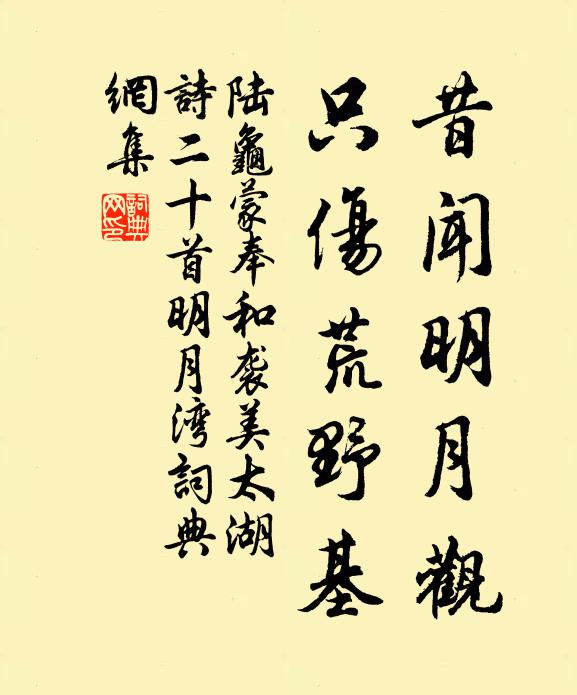 昔聞明月觀
只傷荒野基
陆龜蒙奉和袭美太湖
詩二十首明月湾詞典
網集
詞典网印